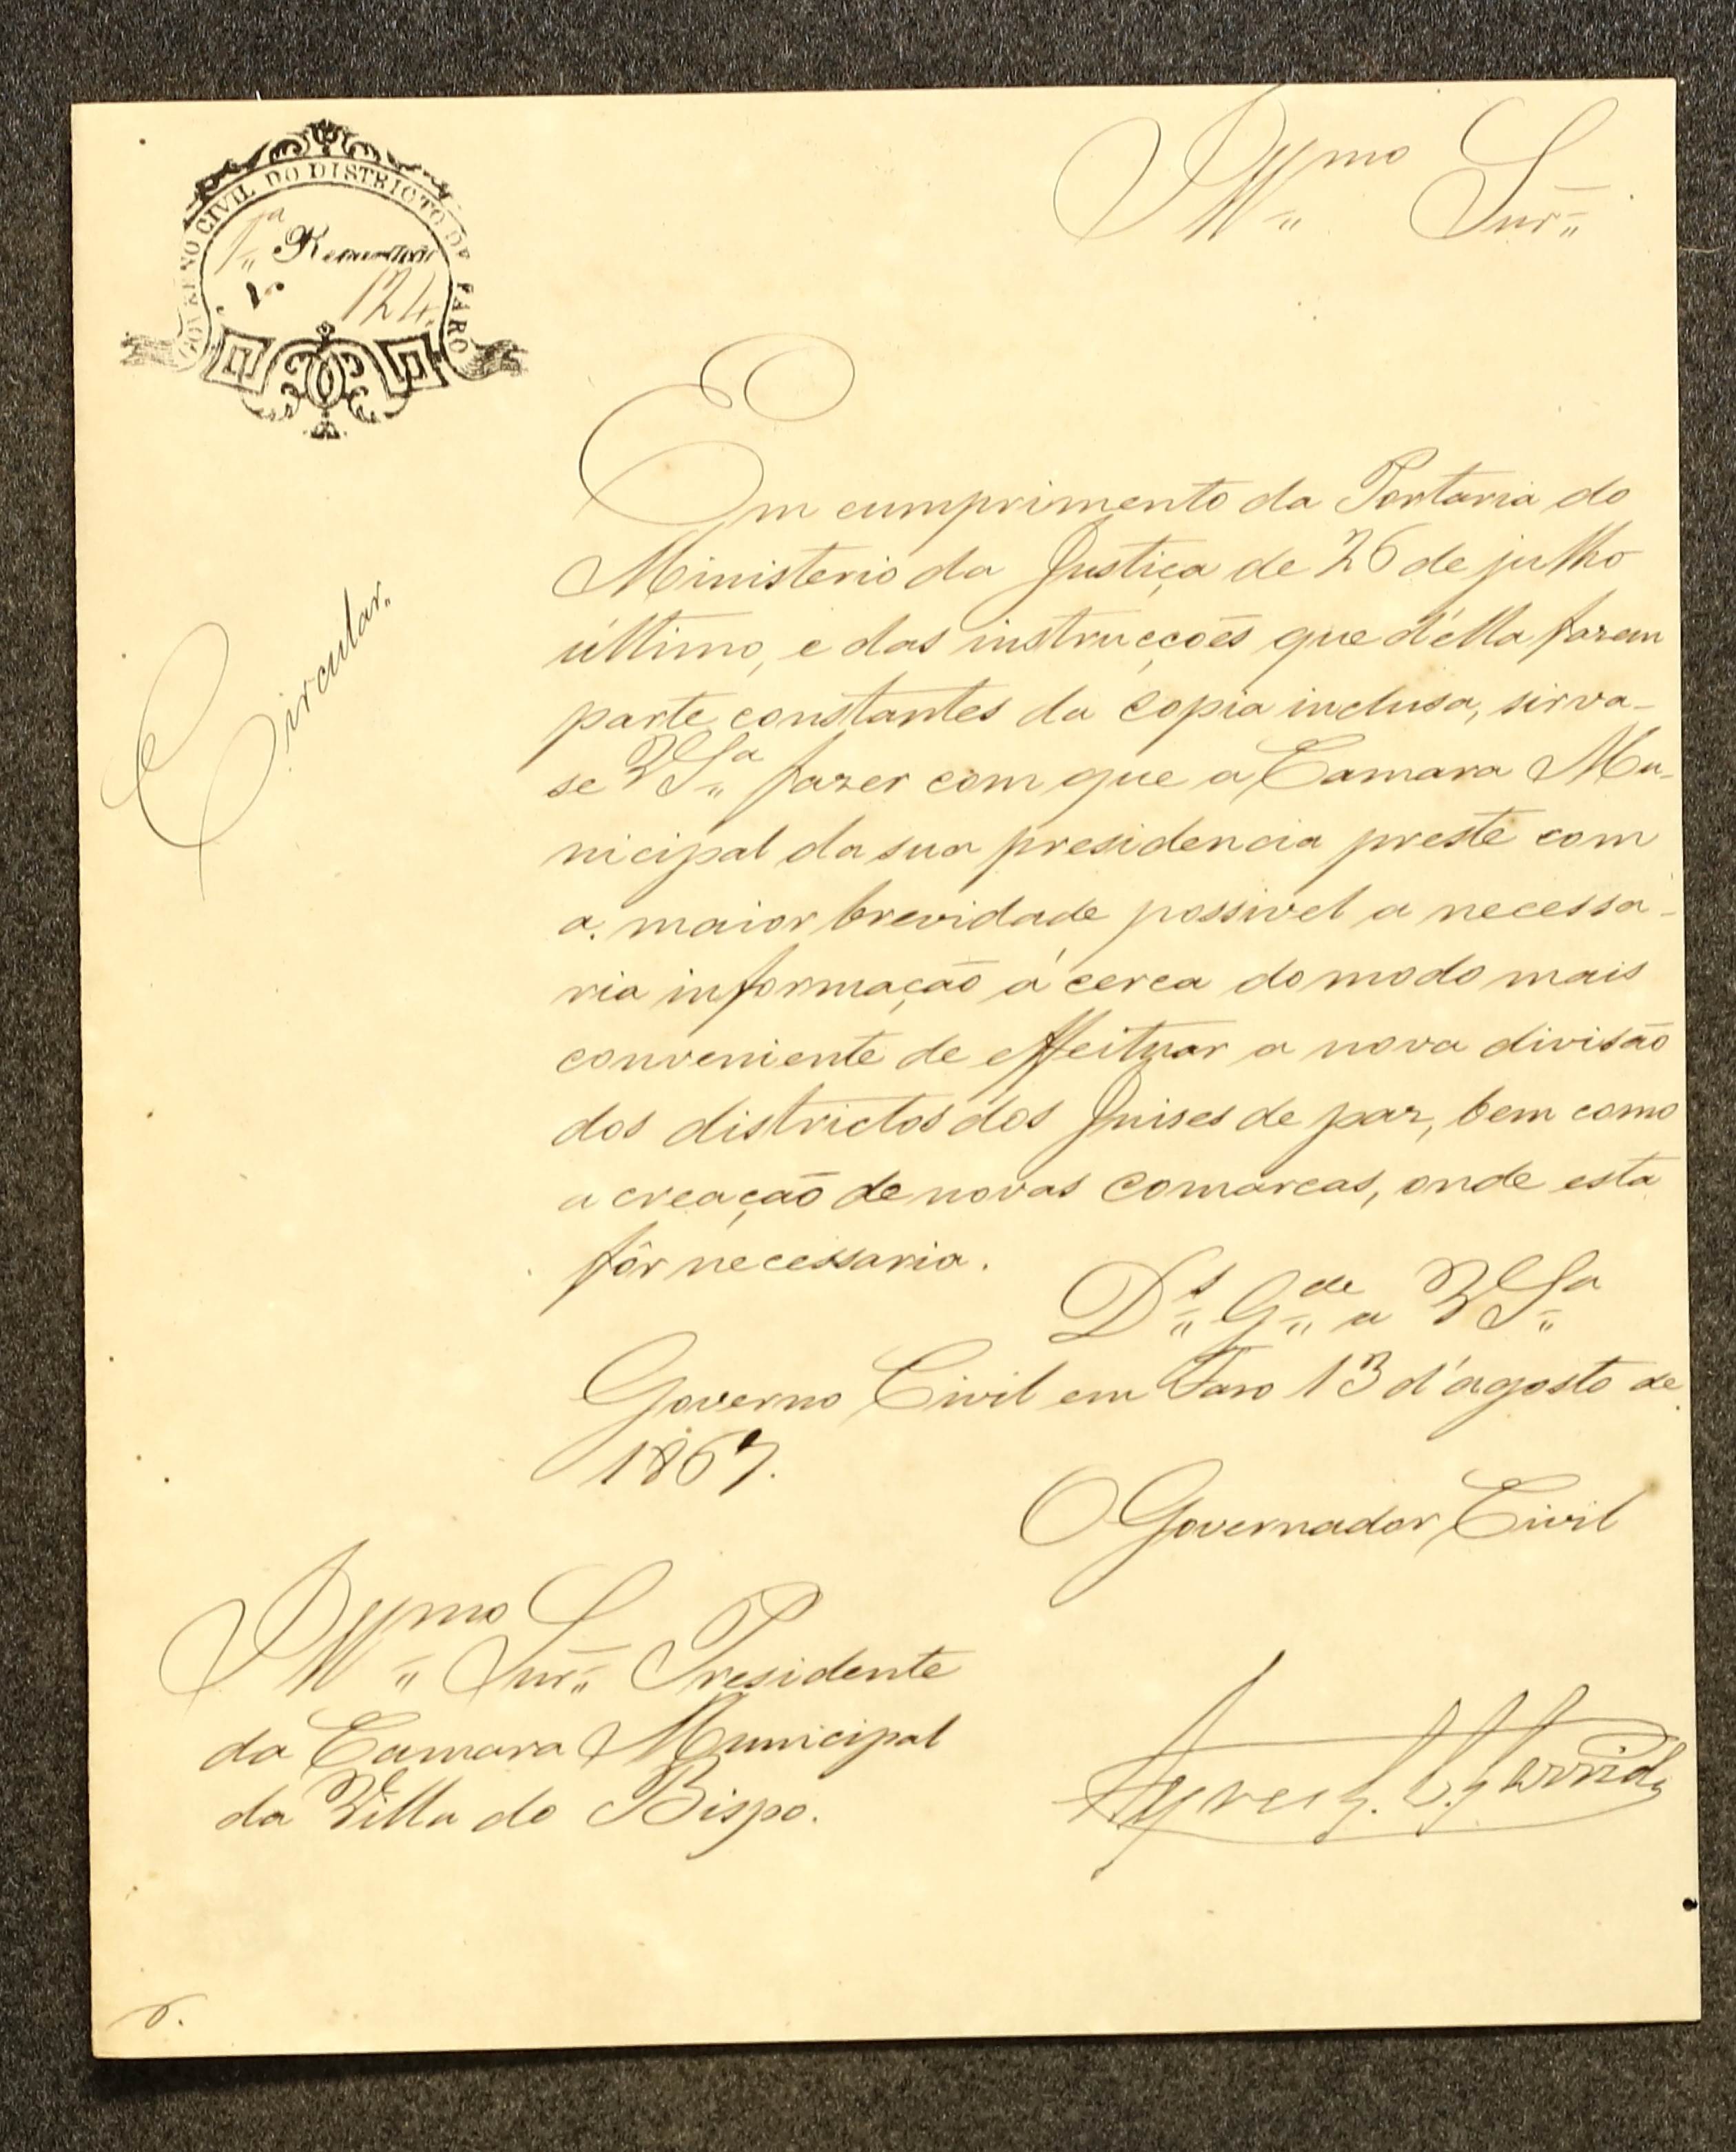 GOVERNO CIVIL DO DISTRICTO DE FARO
1ª Repartição
Nº 124.
Illmo Snr
Circular.
Em cumprimento da Portaria do
Ministerio da Justiça de 26 de julho
último, e das instrucções que d'ella fazem
parte constantes da copia inclusa, sirva-
se VSª fazer com que a Camara Mu-
nicipal da sua presidencia preste com
a maior brevidade possivel a necessa-
ria informação á cerca do modo mais
conveniente de effeituar a nova divisão
dos districtos dos Juises de paz, bem como
a creação de novas comarcas, onde esta
fôr necessaria.
Ds Gde a VSª
Governo Civil em Faro 13 d'agosto de
1867.
O Governador Civil
Illmo Snr Presidente
da Camara Municipal
da Villa do Bispo.